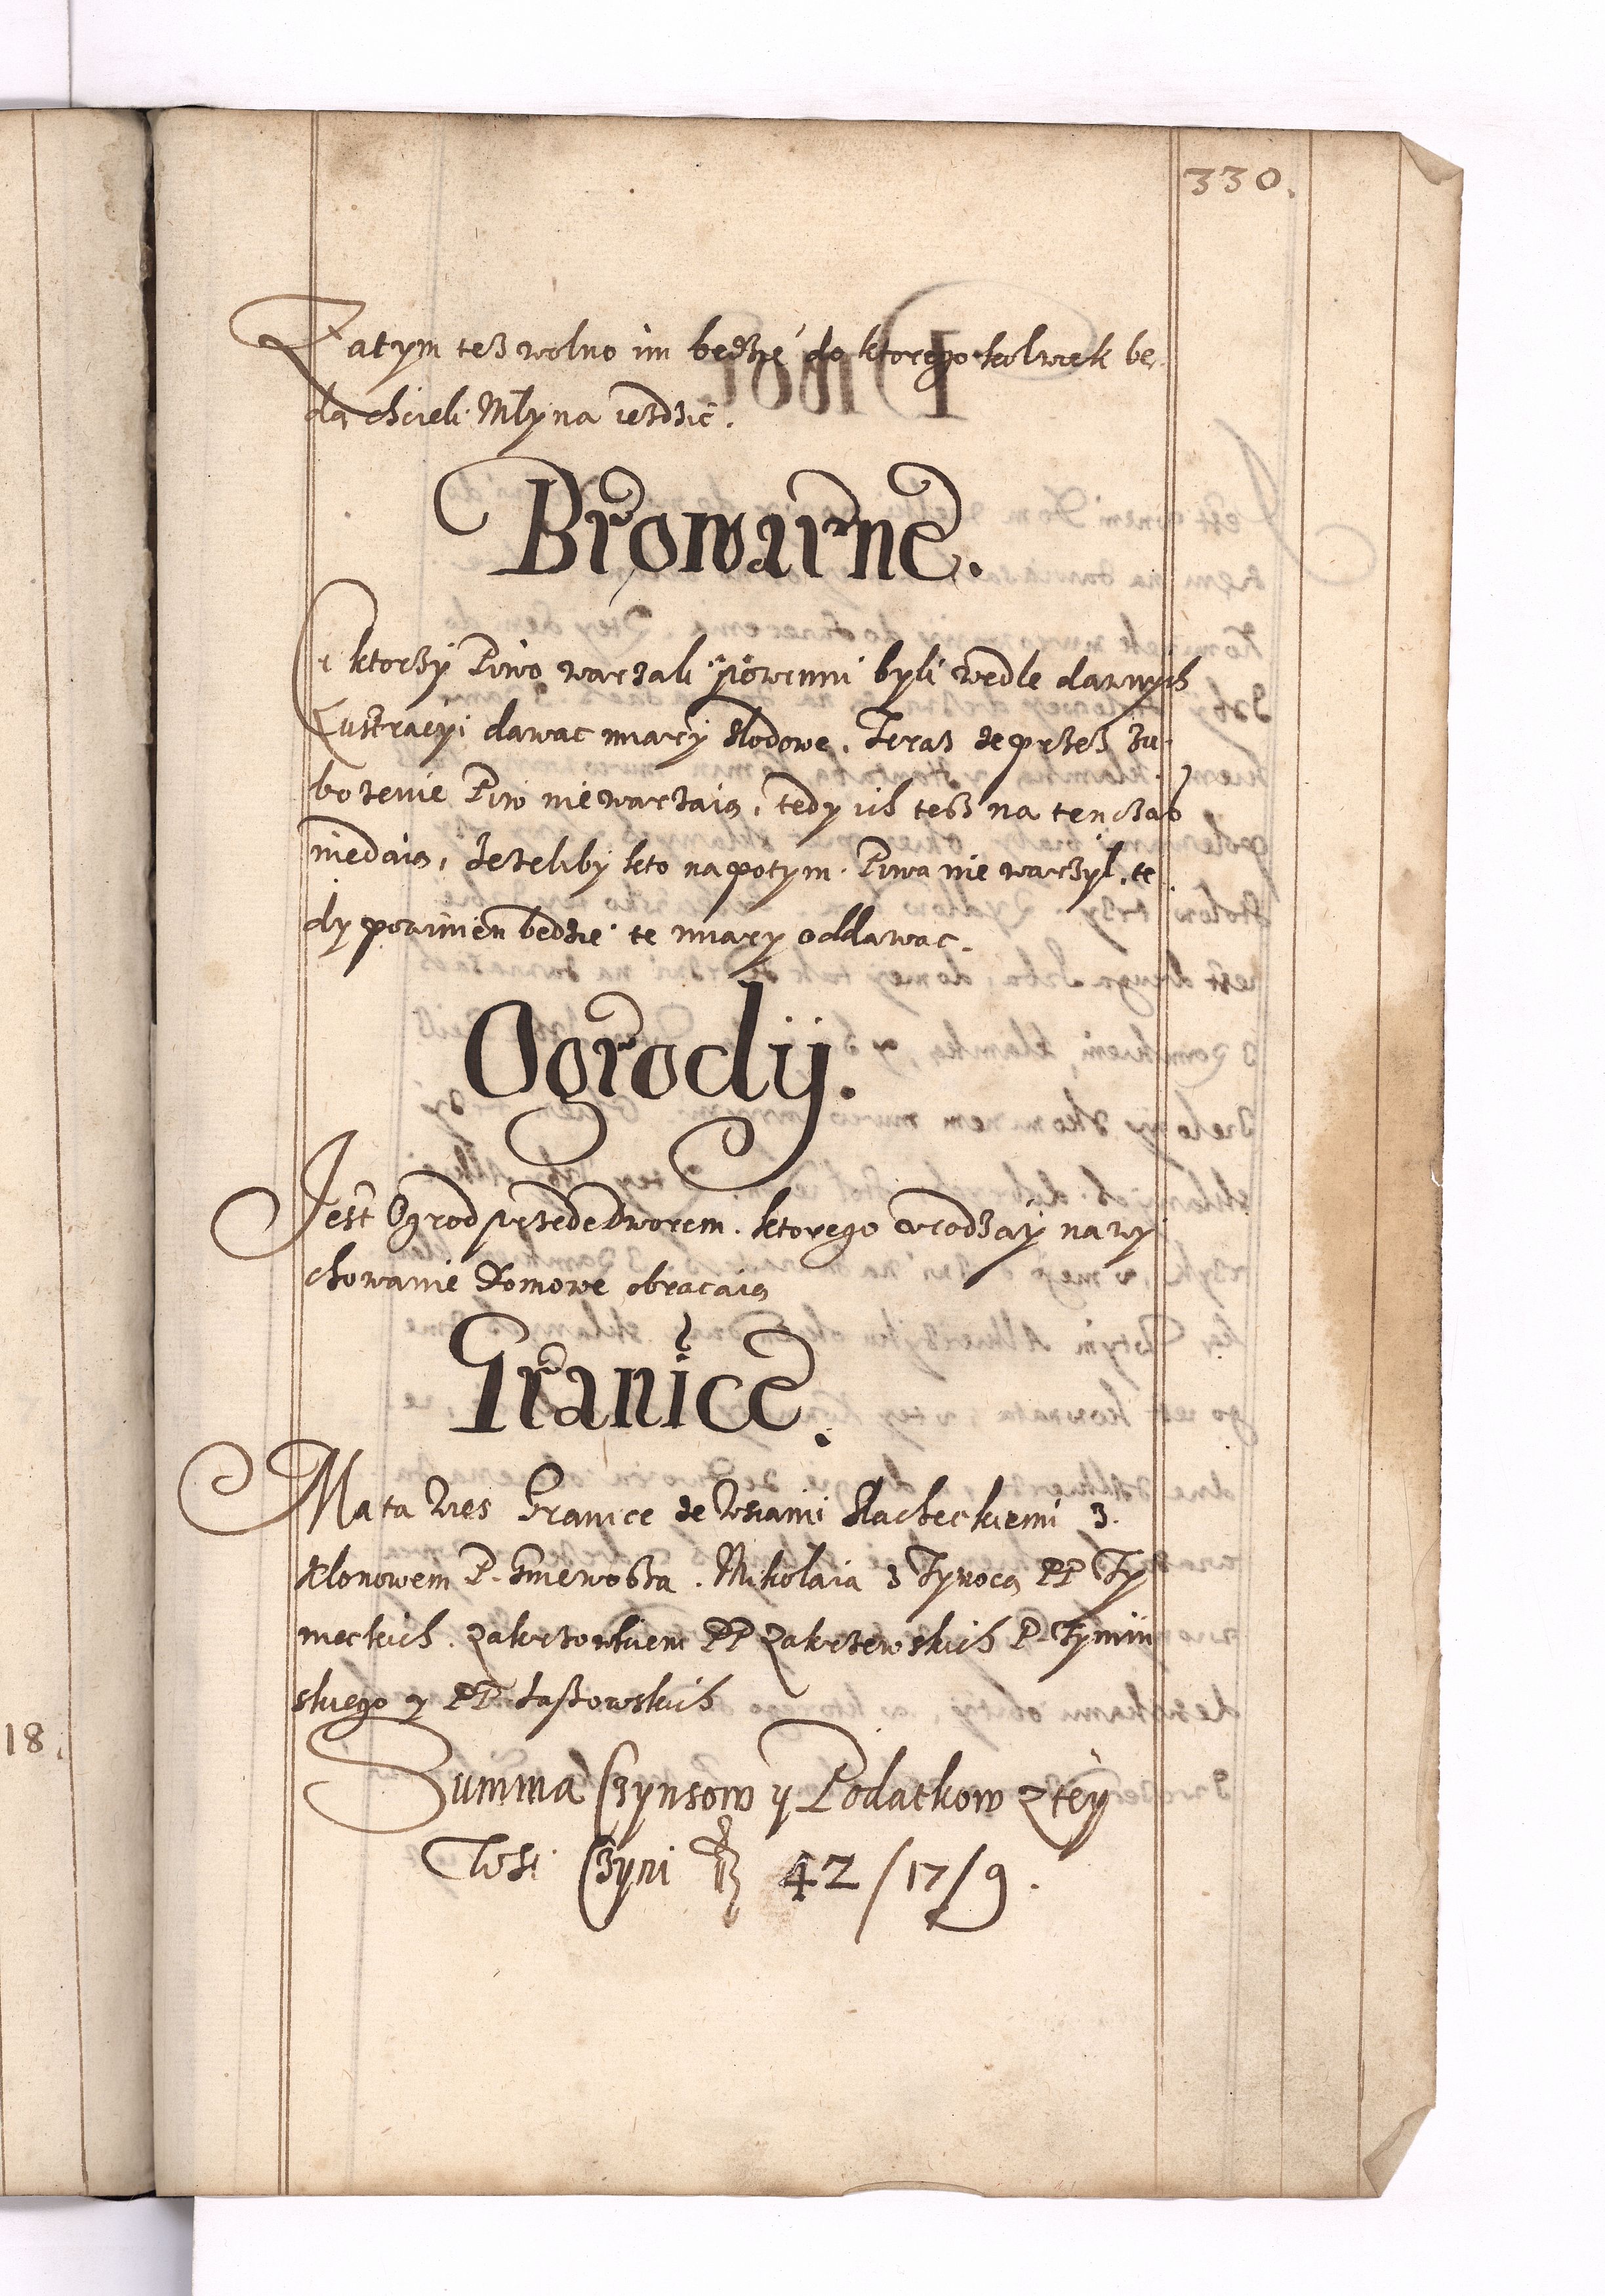 330.
Zatym tesz wolno im będzie do ktorego kolwiek bę
dą chcieli Młyna iezdzic.
Browarne.
Ci ktorzy Piwo warzali powinni byli wedle dawnych
Lustracyi dawac miary słodowe. Teraz ze przez zu
bozenie Piw niewarzaią, tedy ich tesz na tenczas
niedaią, Jezeliby kto napotym Piwa nie warzył, te
dy powinien bedzie te miary oddawac.
Ogrody.
Jest Ogrod przede Dworem. ktorego urodzay na wy
chowanie Domowe obracaią
Granice.
Ma ta Wies Granice ze Wsiami Slacheckiemi z
Klonowem P. Gniewosza. Mikołaia z Tynocą PP Ty
meckich. Zakrzowkiem PP Zakrzewskich P. Tymin
skiego y PP. Łaszowskich
Summa Czynsow y Podatkow z tey
Wsi Czyni 42/17/9.
18.